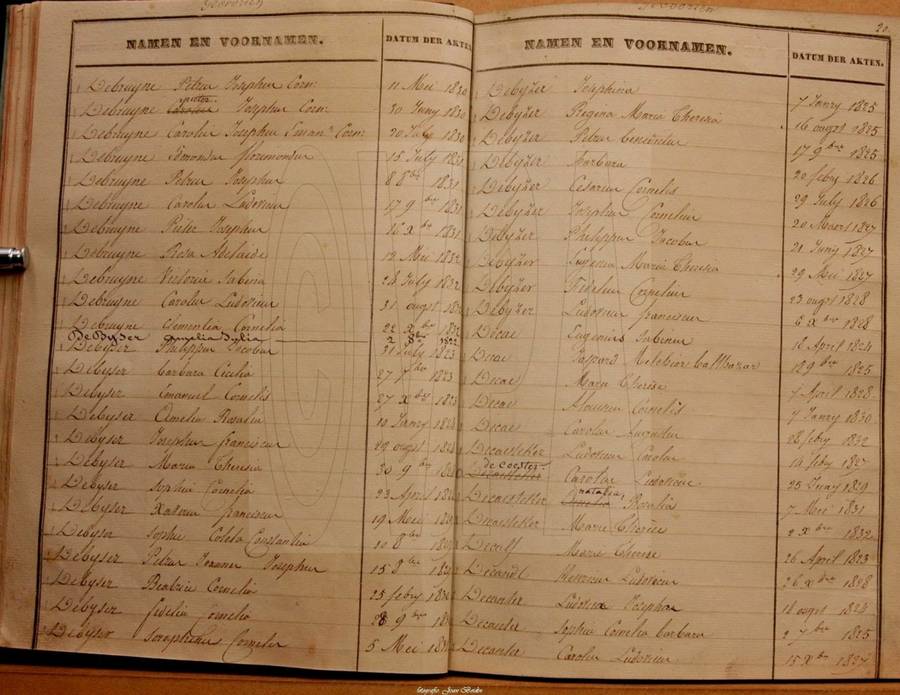 Geboorten
NAMEN EN VOORNAMEN. DATUM DER AKTEN
Debruyne Petrus Josephus Corn: 11 Mei 1830
Debruyne pieter Josephus Corn: 30 Juny 1830
Debruyne Carolus Josephus Eman: Corn: 20 July 1830
Debruyne Edmondus florimondus 15 July 1831
Debruyne Petrus Josephus 8 8bre 1831
Debruyne Carolus Ludovicus 17 9bre 1831
Debruyne Pieter Josephus 16 Xbre 1831
Debruyne Rosa Adelaide 12 Mei 1832
Debruyne Victoria Sabina 28 July 1832
Debruyne Carolus Ludovicus 31 ougst
Debruyne Clementia Cornelia 22 Xbre 1832
De Byser Amelia Julia 2 8bre 1822
Debyser Philippus Jacobus 31 July 1823
Debyser Barbara Cecilia 27 7bre 1823
Debyser Emanuel Cornelis 27 Xbre 1823
Debyser Cornelia Rosalia 10 Janry
Debyser Josephus franciscus 29 ougst
Debyser Maria Theresia 30 9bre
Debyser Sophia Cornelia 23 April
Debyser Xaverius franciscus 19 Mei
Debyser Sophie Coleta Constantia 10 8bre
Debyser Petrus Joannes Josephus 15 8bre
Debyser Beatrix Cornelia 25 febry
Debyser fidelia Cornelia 28 9bre
Debyser Seraphinus Cornelis 5 Mei
Geboorten
20
NAMEN EN VOORNAMEN. DATUM DER AKTEN.
Debyzer Josephina 7 Janry 1825
Debyzer Regina Maria Theresia 16 ougst 1825
Debyzer Petrus Benedictus 17 9bre 1825
Debyzer Barbara 20 febry 1826
Debyzer Cesarius Cornelis 29 July 1826
Debyzer Josephus Cornelius 20 Maart 1827
Debyzer Philippus Jacobus 21 Juny 1827
Debyzer Eugenia Maria Theresia 29 Mei 1827
Debyzer Fidelius Cornelius 23 ougst 1828
Debyzer Ludovicus franciscus 6 Xbre 1828
Decae Eugenius Sabinus 18 April 1824
Decae Gaspard Melchior Balthazar 18 9bre 1825
Decae Marie Therese 7 April 1828
Decae Cornelis 7 Janry 1830
Decae Carolus Augustus 28 febry 1832
Decaesteker Ludovicus Carolus 14 feby 1827
de Coester Carolus Ludovicus 25 1829
Decaesteker natalia Rosalia 7 Mei 1831
Decaesteker Marie Therese 2 Xbre 1832
Decalf Marie Therese 26 April 1823
Henricus Ludovicus 26 Xbre 1828
Decanter Ludovicus Josephus 18 ougst 1824
Decanter Sophia Cornelia barbara 2 7bre 1825
Decanter Carolus Ludovicus 15 Xbre 1827
fotografie: Joan Beiden